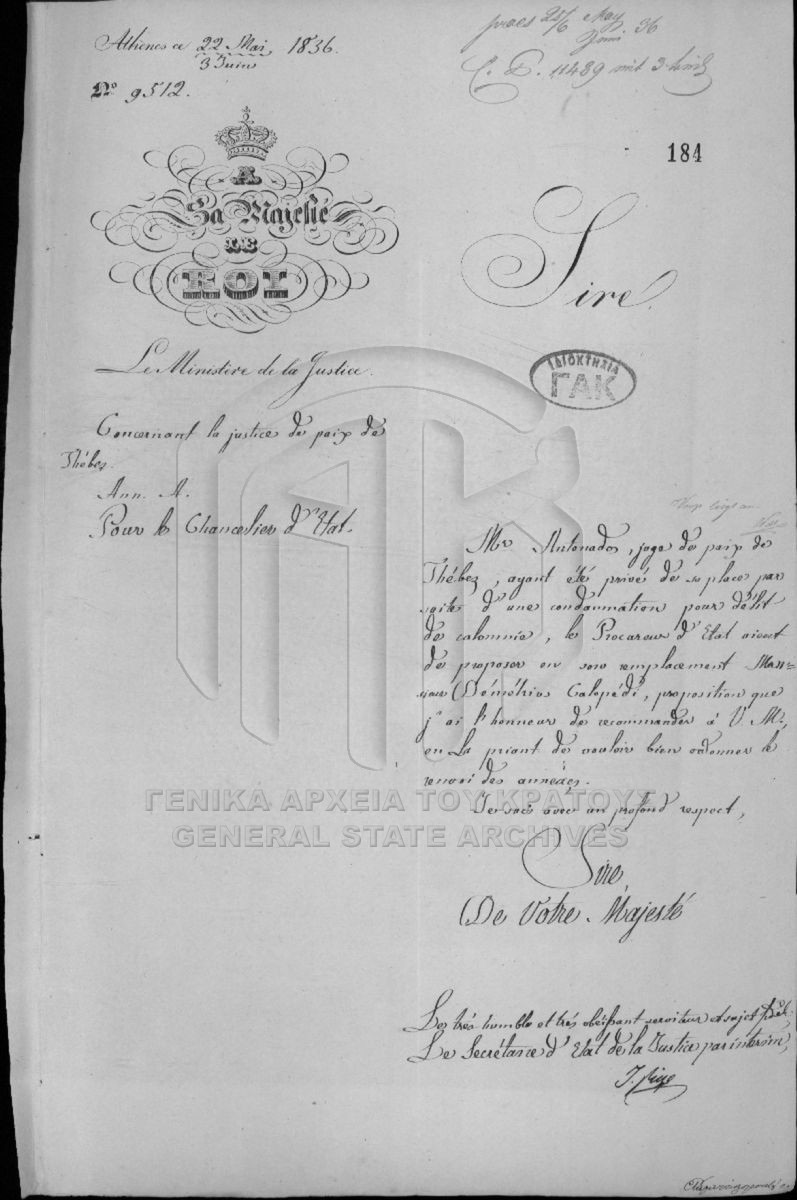 Athènes ce 22 Mai 1836.
3 Juin
No 9512.
praes 25/6 May
Juni 36
C. D. 11489 mit 3
184
A
Sa Majesté
LE
ROI
Sire.
Le Ministère de la Justice.
ΙΔΙΟΚΤΗΣΙΑ
ΓΑΚ
Concernant la justice de paix de
Thèbes.
Ann. A.
Pour le Chancelier d'Etat.
Mr Antoniades, juge de paix de
Thèbes, ayant été privé de sa place par
suite d'une condamnation pour délit
de calomnie, le Procureur d'Etat vient
de proposer en son remplacement Mon=
sieur Démétrius Calopédi, proposition que
j'ai l'honneur de recommander à V. M.,
en La priant de vouloir bien ordonner le
renvoi des annexes.
Je suis avec un profond respect,
ΓΕΝΙΚΑ ΑΡΧΕΙΑ ΤΟΥ ΚΡΑΤΟΥΣ
GENERAL STATE ARCHIVES
Sire,
De Votre Majesté
Le très humble et très obéissant serviteur et sujet fidèl.
Le Secrétaire d'Etat de la Justice par interim,